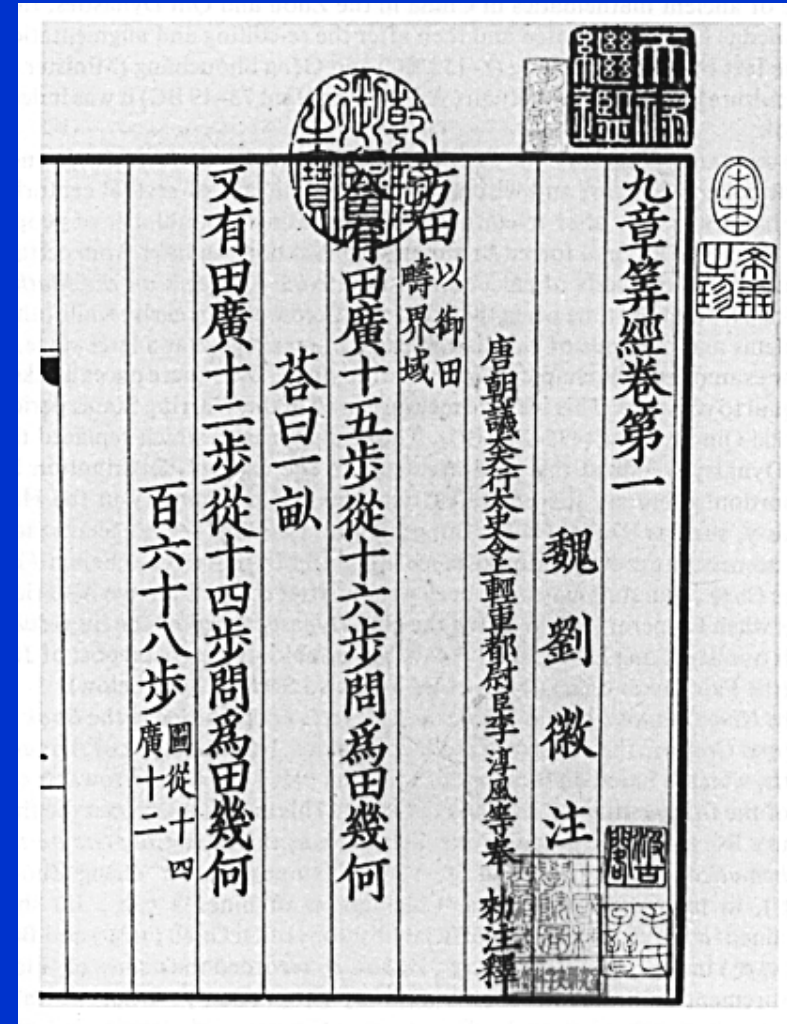 九章筭經卷第一
魏劉徽注
唐朝議大夫行太史令上輕車都尉臣李淳風等奉 勑注釋
方田
以御田
疇界域
今有田廣十五步從十六步問爲田幾何
荅曰一畝
又有田廣十二步從十四步問爲田幾何
百六十八步
圖從十四
廣十二
天祿繼鑑
乾隆御覽之寶
希世之珍